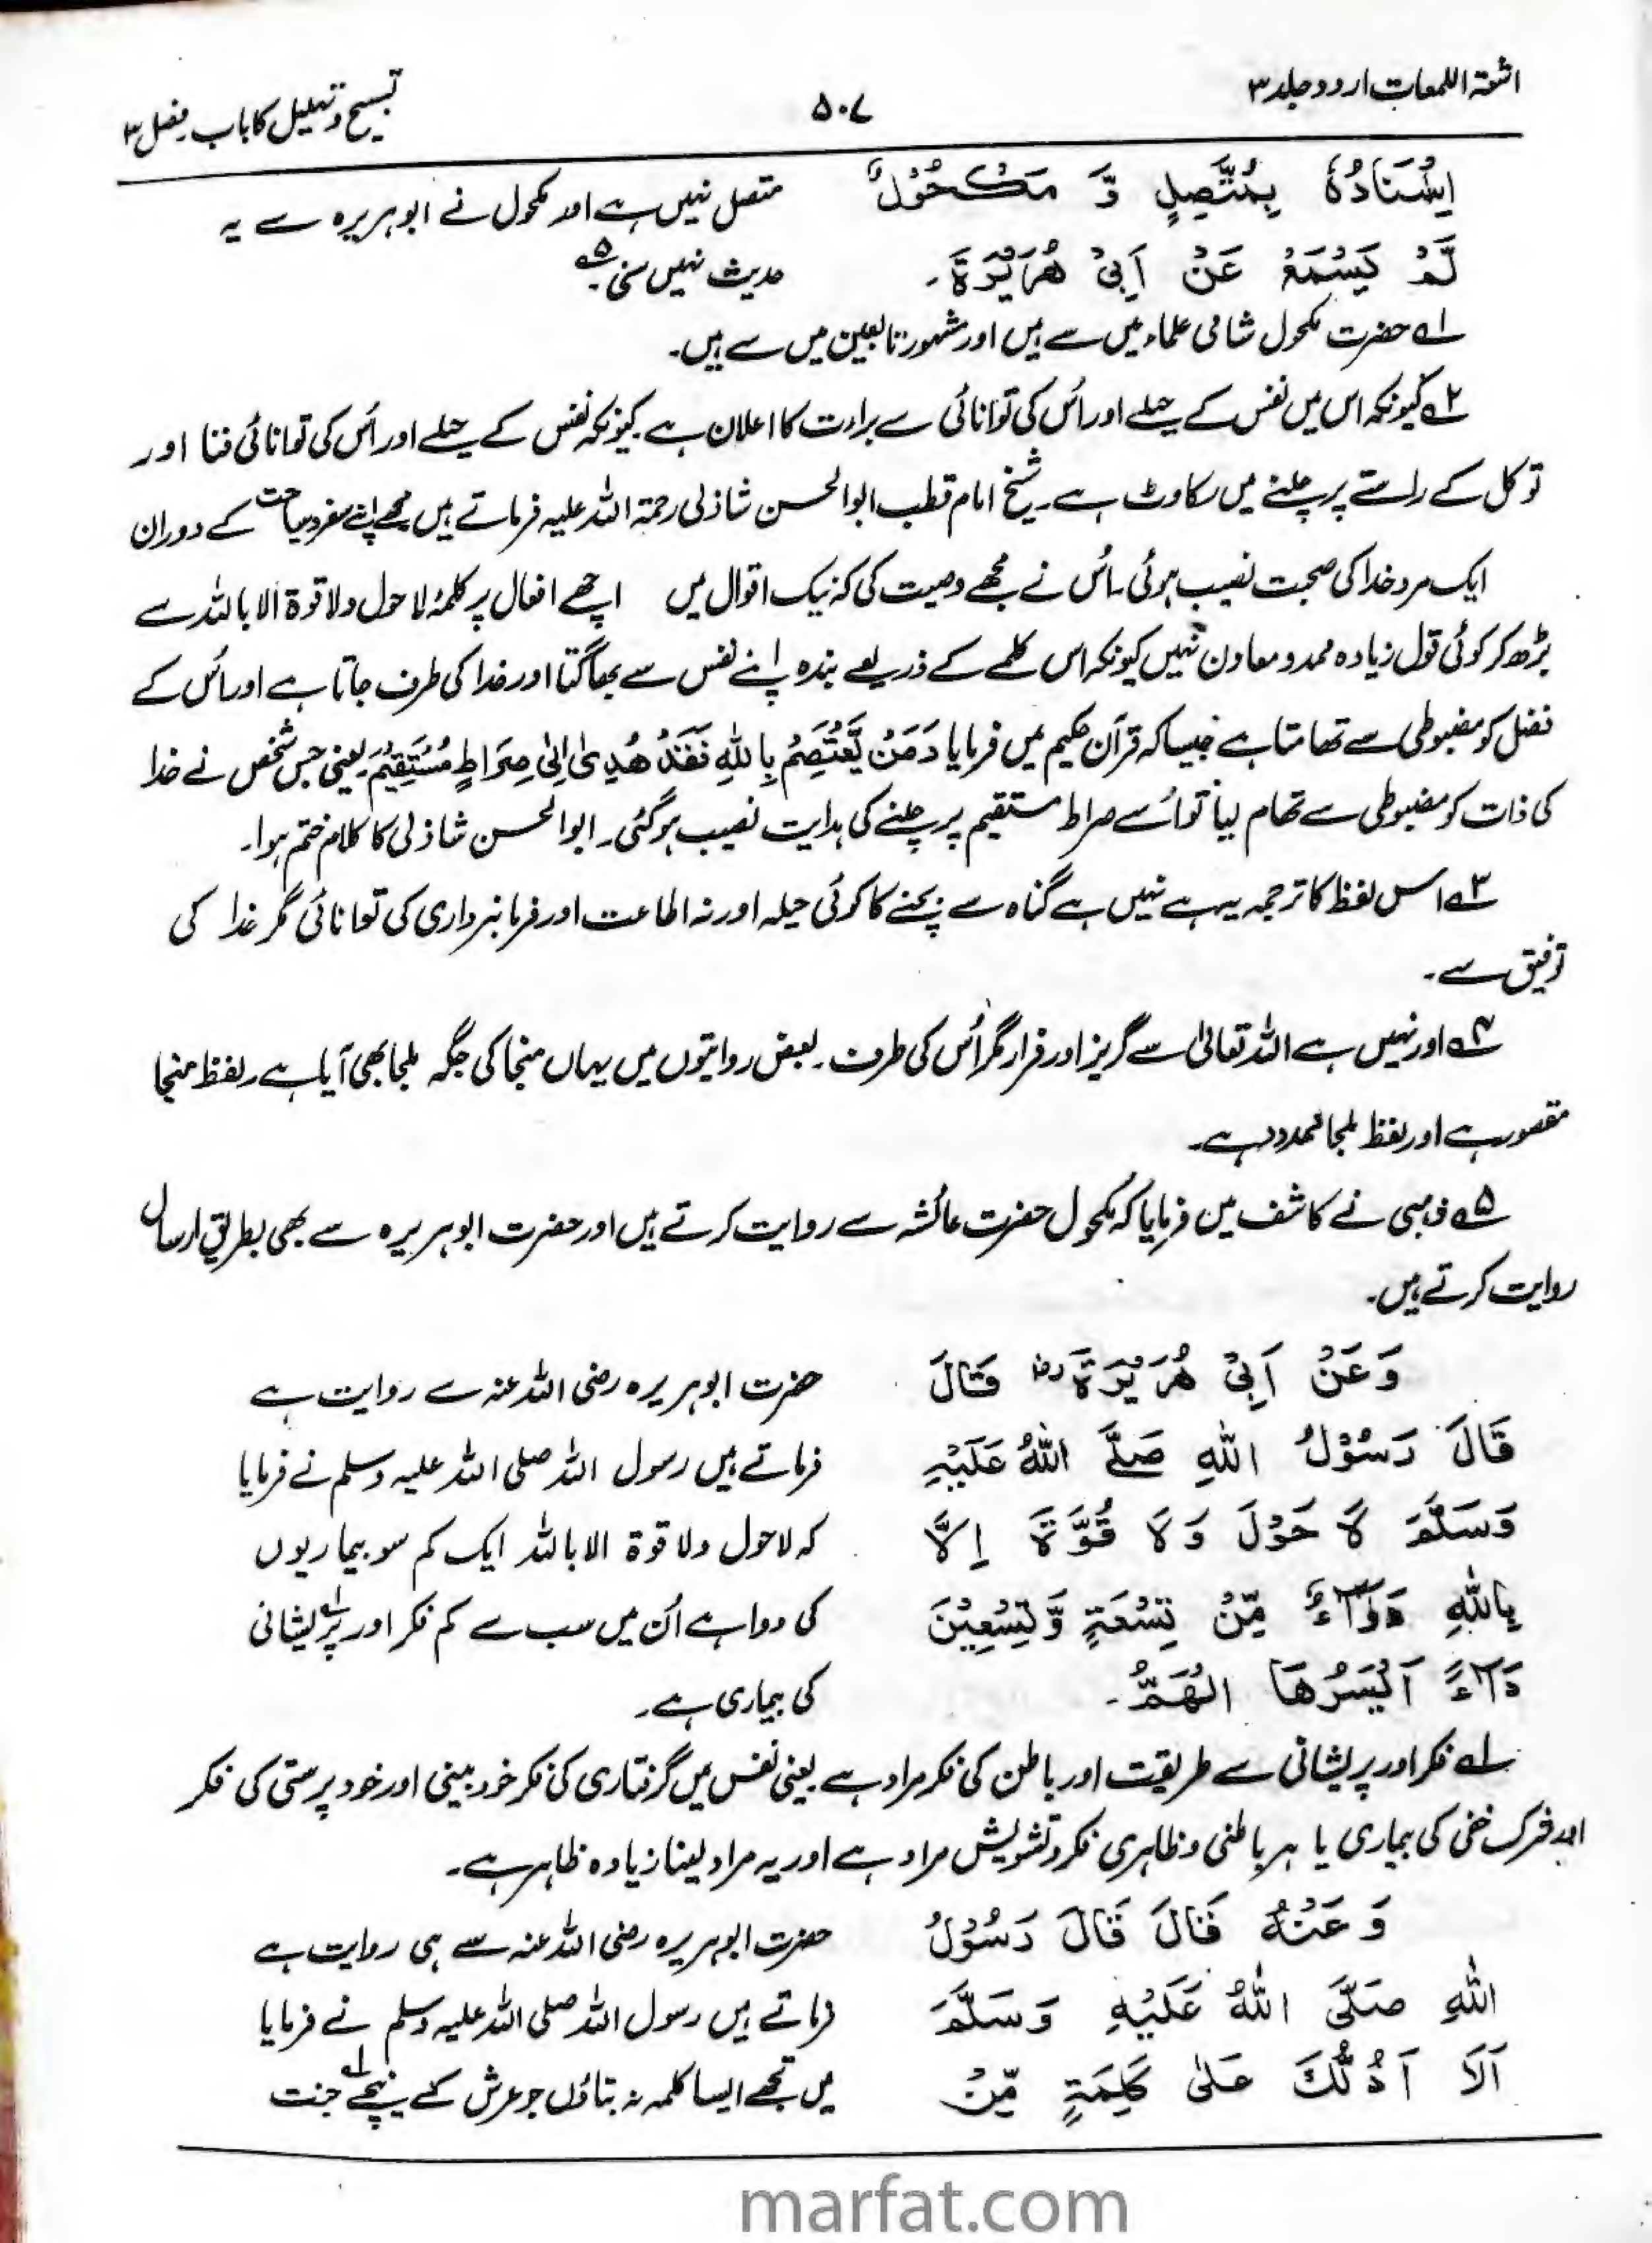 اشعۃ اللمعات اردو جلد ۳
۵۰۷
تسبیح و تہلیل کا باب فصل ۳
اِسْنَادُهٗ بِمُتَّصِلٍ وَّ مَكْحُوْلٌ
متصل نہیں ہے اور مکحول نے ابوہریرہ سے یہ
لَمْ يَسْمَعْ عَنْ اَبِيْ هُرَيْرَةَ۔
حدیث نہیں سنی۔ ۵ے
۱ے حضرت مکحول شامی علماء میں سے ہیں اور مشہور تابعین میں سے ہیں۔
۲ے کیونکہ اس میں نفس کے حیلے اور اُس کی توانائی سے براءت کا اعلان ہے۔ کیونکہ نفس کے حیلے اور اُس کی توانائی فنا اور
توکل کے راستے پر چلنے میں رکاوٹ ہے۔ شیخ امام قطب ابوالحسن شاذلی رحمۃ اللہ علیہ فرماتے ہیں مجھے اپنے سفر و سیاحت کے دوران
ایک مرد خدا کی صحبت نصیب ہوئی۔ اُس نے مجھے وصیت کی کہ نیک اقوال میں اچھے افعال پر کلمۂ لاحول ولا قوۃ الا باللہ سے
بڑھ کر کوئی قول زیادہ ممد و معاون نہیں کیونکہ اس کلمے کے ذریعے بندہ اپنے نفس سے بھاگتا اور خدا کی طرف جاتا ہے اور اُس کے
فضل کو مضبوطی سے تھامتا ہے جیسا کہ قرآن حکیم میں فرمایا وَمَنْ يَّعْتَصِمْ بِاللّٰهِ فَقَدْ هُدِىَ اِلٰى صِرَاطٍ مُّسْتَقِيْمٍ یعنی جس شخص نے خدا
کی ذات کو مضبوطی سے تھام لیا تو اُسے صراط مستقیم پر چلنے کی ہدایت نصیب ہوگئی۔ ابوالحسن شاذلی کا کلام ختم ہوا۔
۳ے اس لفظ کا ترجمہ یہ ہے نہیں ہے گناہ سے بچنے کا کوئی حیلہ اور نہ اطاعت اور فرمانبرداری کی توانائی مگر خدا کی
توفیق سے۔
۴ے اور نہیں ہے اللہ تعالیٰ سے گریز اور فرار مگر اُس کی طرف۔ بعض روایتوں میں یہاں منجا کی جگہ ملجا بھی آیا ہے۔ لفظ منجا
مقصور ہے اور لفظ ملجا ممدود ہے۔
۵ے ذہبی نے کاشف میں فرمایا کہ مکحول حضرت عائشہ سے روایت کرتے ہیں اور حضرت ابوہریرہ سے بھی بطریق ارسال
روایت کرتے ہیں۔
وَعَنْ اَبِيْ هُرَيْرَةَ رض قَالَ
حضرت ابوہریرہ رضی اللہ عنہ سے روایت ہے
قَالَ رَسُوْلُ اللّٰهِ صَلَّى اللّٰهُ عَلَيْهِ
فرماتے ہیں رسول اللہ صلی اللہ علیہ وسلم نے فرمایا
وَسَلَّمَ لَا حَوْلَ وَلَا قُوَّةَ اِلَّا
کہ لاحول ولا قوۃ الا باللہ ایک کم سو بیماریوں
بِاللّٰهِ دَوَآءٌ مِّنْ تِسْعَةٍ وَّتِسْعِيْنَ
کی دوا ہے اُن میں سب سے کم فکر اور پریشانی ۱ے
دَآءً اَيْسَرُهَا الْهَمُّ۔
کی بیماری ہے۔
۱ے فکر اور پریشانی سے طریقت اور باطن کی فکر مراد ہے یعنی نفس میں گرفتاری کی فکر خود بینی اور خود پرستی کی فکر
اور شرک خفی کی بیماری یا ہر باطنی و ظاہری فکر و تشویش مراد ہے اور یہ مراد لینا زیادہ ظاہر ہے۔
وَعَنْهُ قَالَ قَالَ رَسُوْلُ
حضرت ابوہریرہ رضی اللہ عنہ سے ہی روایت ہے
اللّٰهِ صَلَّى اللّٰهُ عَلَيْهِ وَسَلَّمَ
فرماتے ہیں رسول اللہ صلی اللہ علیہ وسلم نے فرمایا
اَلَا اَدُلُّكَ عَلٰى كَلِمَةٍ مِّنْ
میں تجھے ایسا کلمہ نہ بتاؤں جو عرش کے نیچے ۱ے جنت
marfat.com